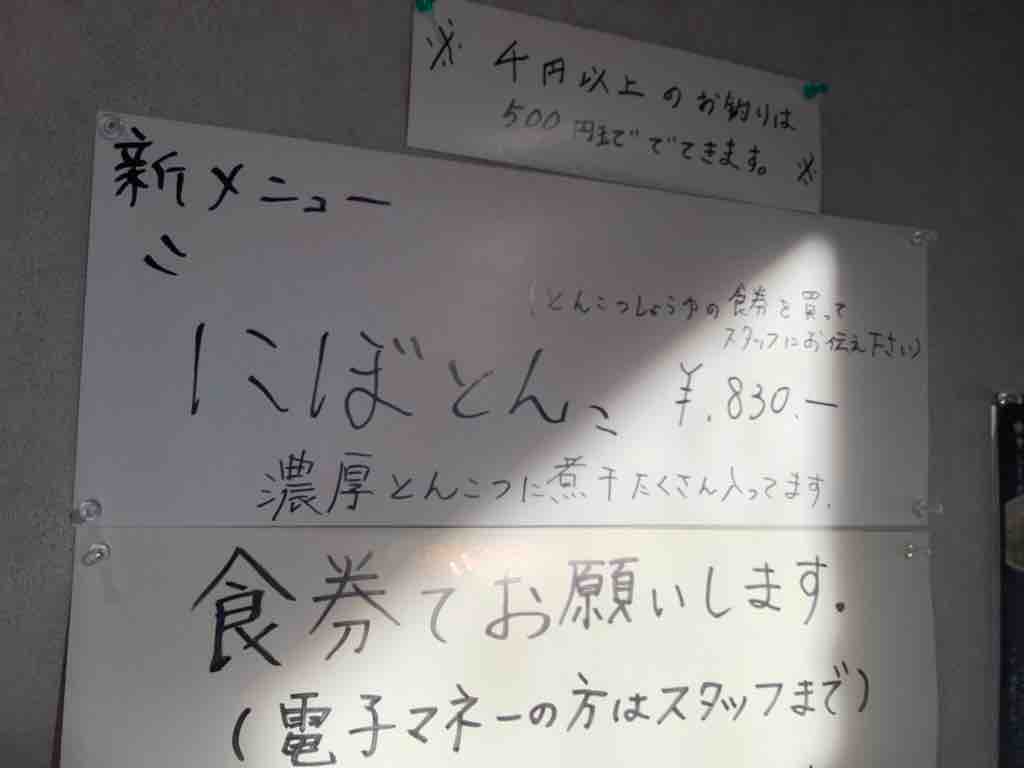 ※ 千円以上のお釣りは
500円までできます。※
新メニュー
(とんこつしょうゆの食券を買って
スタッフにお伝え下さい)
にぼとん、 ¥.830.ー
濃厚とんこつに煮干たくさん入ってます.
食券でお願いします.
(電子マネーの方はスタッフまで)